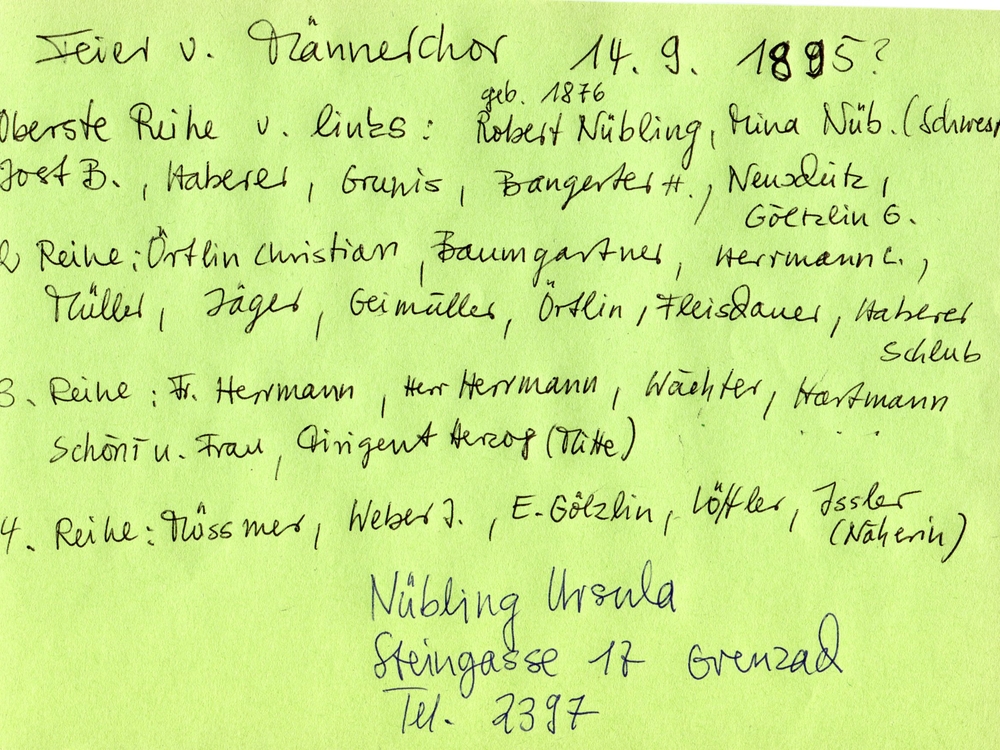 Feier v. Männerchor 14. 9. 1895?
geb. 1876
Oberste Reihe v. links: Robert Nübling, Mina Nüb. (Schwes
Jost B., Haberer, Grunis, Bangerter H., Neusdütz,
Göltzlin G.
2 Reihe: Örtlin Christian, Baumgartner, Herrmann C.,
Müller, Jäger, Geimüller, Örtlin, Fleisdauer, Haberer
Schlub
3. Reihe: Fr. Herrmann, Herr Herrmann, Wächter, Hartmann
Schöni u. Frau, Dirigent Herzog (Mitte)
4. Reihe: Müssmer, Weber J., E. Gölzlin, Löffler, Issler
(Näherin)
Nübling Ursula
Steingasse 17 Grenzad
Tel. 2397